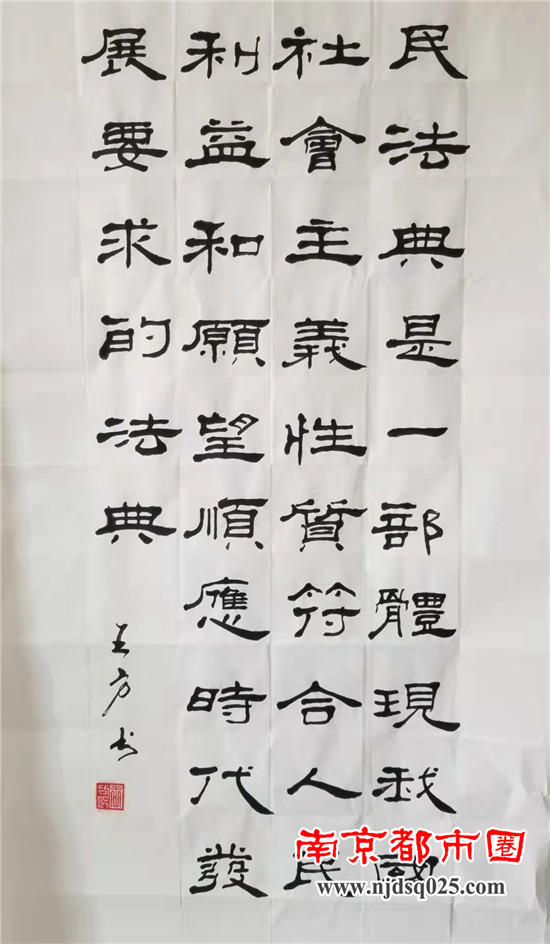 民法典是一部體現我國
社會主義性質符合人民
利益和願望順應時代發
展要求的法典
王方书
南京都市圈
www.njdsq025.com